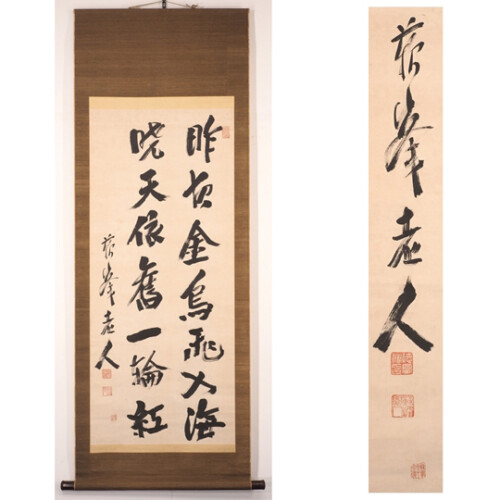 昨夜金烏飛入海
曉天依舊一輪紅
蘇峰老人
蘇峰老人